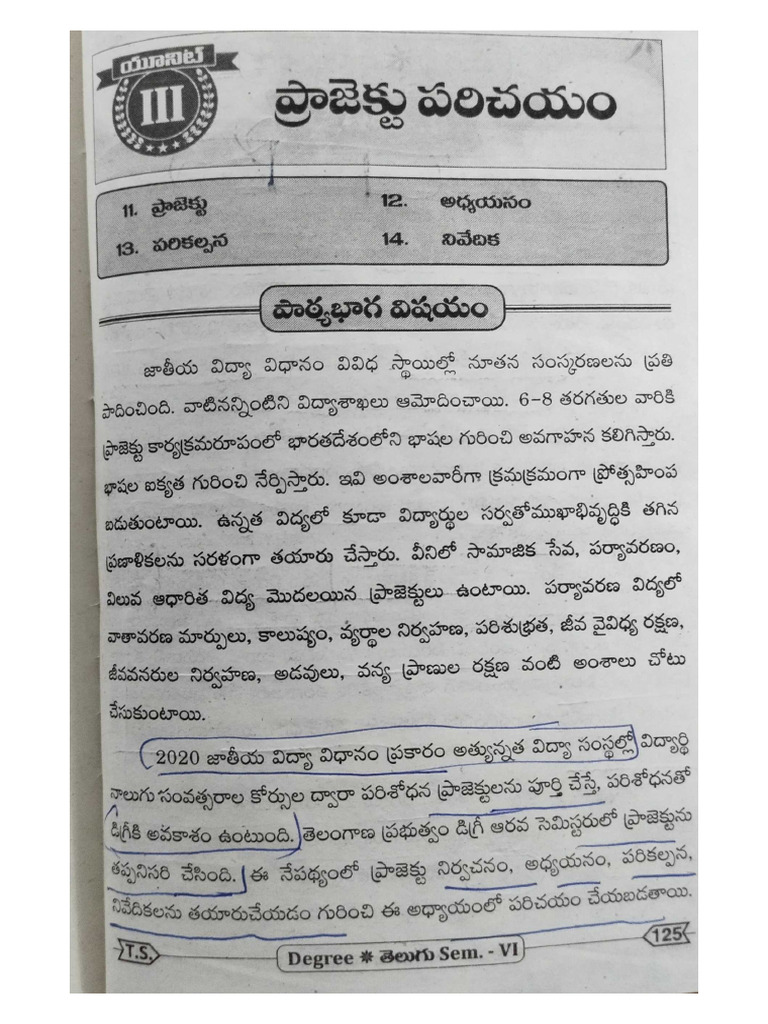 యూనిట్
III
ప్రాజెక్టు పరిచయం
11. ప్రాజెక్టు
12. అధ్యయనం
13. పరికల్పన
14. నివేదిక
పాఠ్యభాగ విషయం
జాతీయ విద్యా విధానం వివిధ స్థాయిల్లో నూతన సంస్కరణలను ప్రతి
పాదించింది. వాటినన్నింటిని విద్యాశాఖలు ఆమోదించాయి. 6-8 తరగతుల వారికి
ప్రాజెక్టు కార్యక్రమరూపంలో భారతదేశంలోని భాషల గురించి అవగాహన కలిగిస్తారు.
భాషల ఐక్యత గురించి నేర్పిస్తారు. ఇవి అంశాలవారీగా క్రమక్రమంగా ప్రోత్సహింప
బడుతుంటాయి. ఉన్నత విద్యలో కూడా విద్యార్థుల సర్వతోముఖాభివృద్ధికి తగిన
ప్రణాళికలను సరళంగా తయారు చేస్తారు. వీనిలో సామాజిక సేవ, పర్యావరణం,
విలువ ఆధారిత విద్య మొదలయిన ప్రాజెక్టులు ఉంటాయి. పర్యావరణ విద్యలో
వాతావరణ మార్పులు, కాలుష్యం, వ్యర్థాల నిర్వహణ, పరిశుభ్రత, జీవ వైవిధ్య రక్షణ,
జీవవనరుల నిర్వహణ, అడవులు, వన్య ప్రాణుల రక్షణ వంటి అంశాలు చోటు
చేసుకుంటాయి.
2020 జాతీయ విద్యా విధానం ప్రకారం అత్యున్నత విద్యా సంస్థల్లో విద్యార్థి
నాలుగు సంవత్సరాల కోర్సుల ద్వారా పరిశోధన ప్రాజెక్టులను పూర్తి చేస్తే, పరిశోధనతో
డిగ్రీకి అవకాశం ఉంటుంది. తెలంగాణ ప్రభుత్వం డిగ్రీ ఆరవ సెమిస్టరులో ప్రాజెక్టును
తప్పనిసరి చేసింది. ఈ నేపథ్యంలో ప్రాజెక్టు నిర్వచనం, అధ్యయనం, పరికల్పన,
నివేదికలను తయారుచేయడం గురించి ఈ అధ్యాయంలో పరిచయం చేయబడతాయి.
T.S.
Degree ✻ తెలుగు Sem. - VI
125